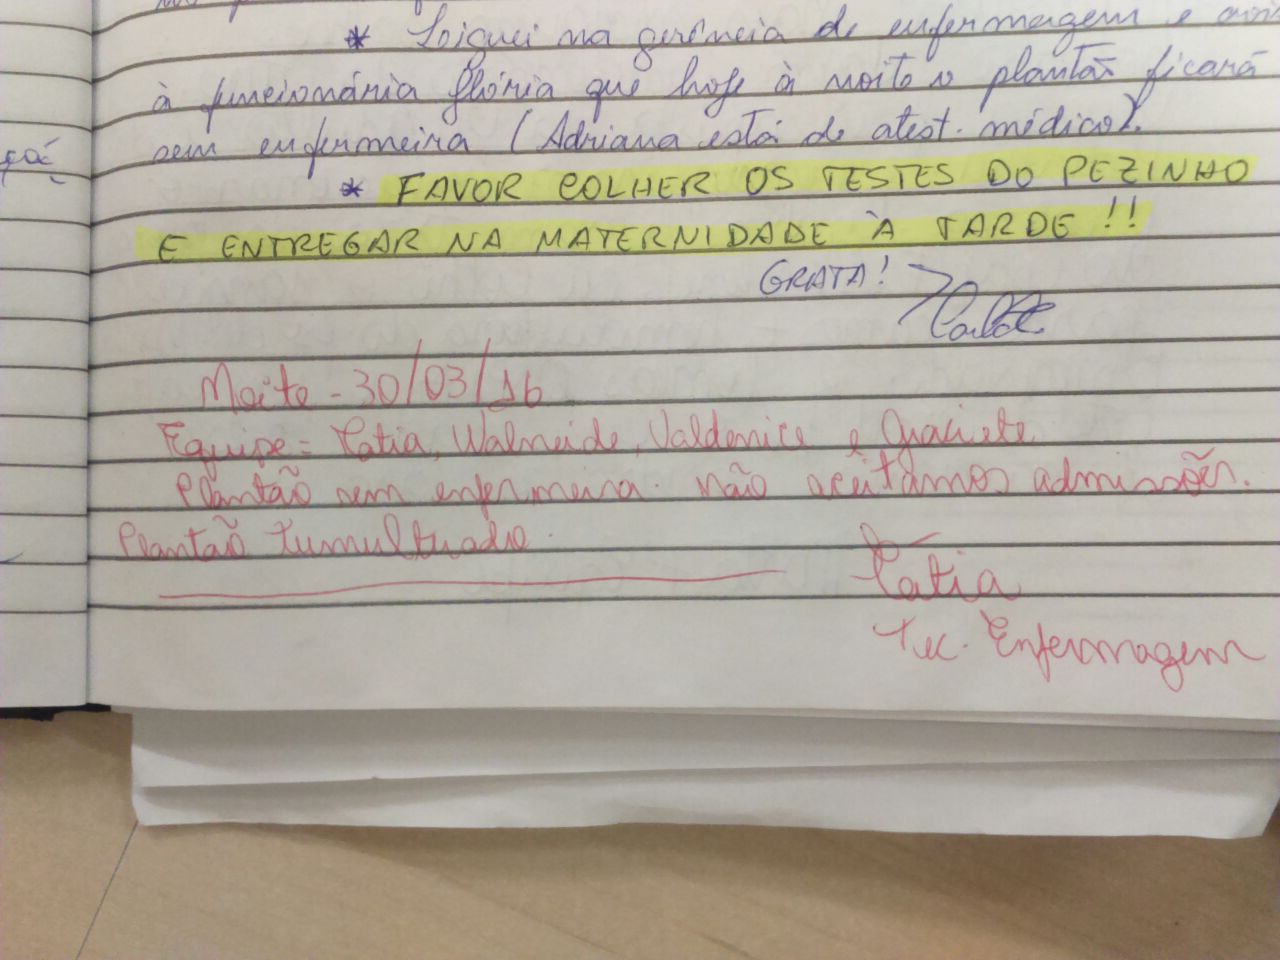 * Liguei na gerência de enfermagem e
à funcionária Glória que hoje à noite o plantão ficará
sem enfermeira (Adriana está de atest. médico).
* FAVOR COLHER OS TESTES DO PEZINHO
E ENTREGAR NA MATERNIDADE À TARDE!!
GRATA!
Noite - 30/03/16
Equipe = Tatia, Walneide, Valdenice e Graciete
Plantão sem enfermeira. Não aceitamos admissões.
Plantão tumultuado.
Tatia
Tec. Enfermagem